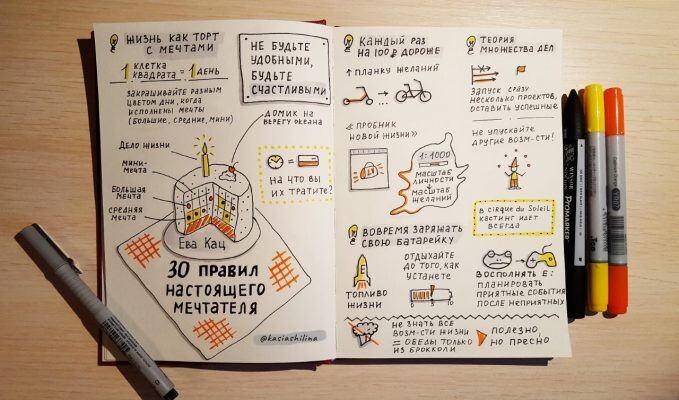 Жизнь как торт
с мечтами
1 клетка
квадрата = 1 день
закрашивайте разным
цветом дни, когда
исполнены мечты
(большие, средние, мини)
Не будьте
удобными,
будьте
счастливыми
домик на
берегу океана
Дело жизни
мини-
мечта
Большая
мечта
средняя
мечта
на что вы
их тратите?
Ева Кац
30 правил
настоящего
мечтателя
@kasiashilina
Каждый раз
на 100 ₽ дороже
↑ планку желаний
«Пробник
новой жизни»
1:1000
масштаб
личности
масштаб
желаний
Вовремя заряжать
свою батарейку
Топливо
жизни
отдыхайте
до того, как
устанете
Теория
множества дел
запуск сразу
нескольких проектов,
оставить успешные
не упускайте
другие возм-сти!
в Cirque du Soleil
кастинг идет
всегда
восполнять Е:
планировать
приятные события
после неприятных
не знать все
возм-сти жизни
= обеды только
из брокколи
полезно,
но пресно
PROMARKER